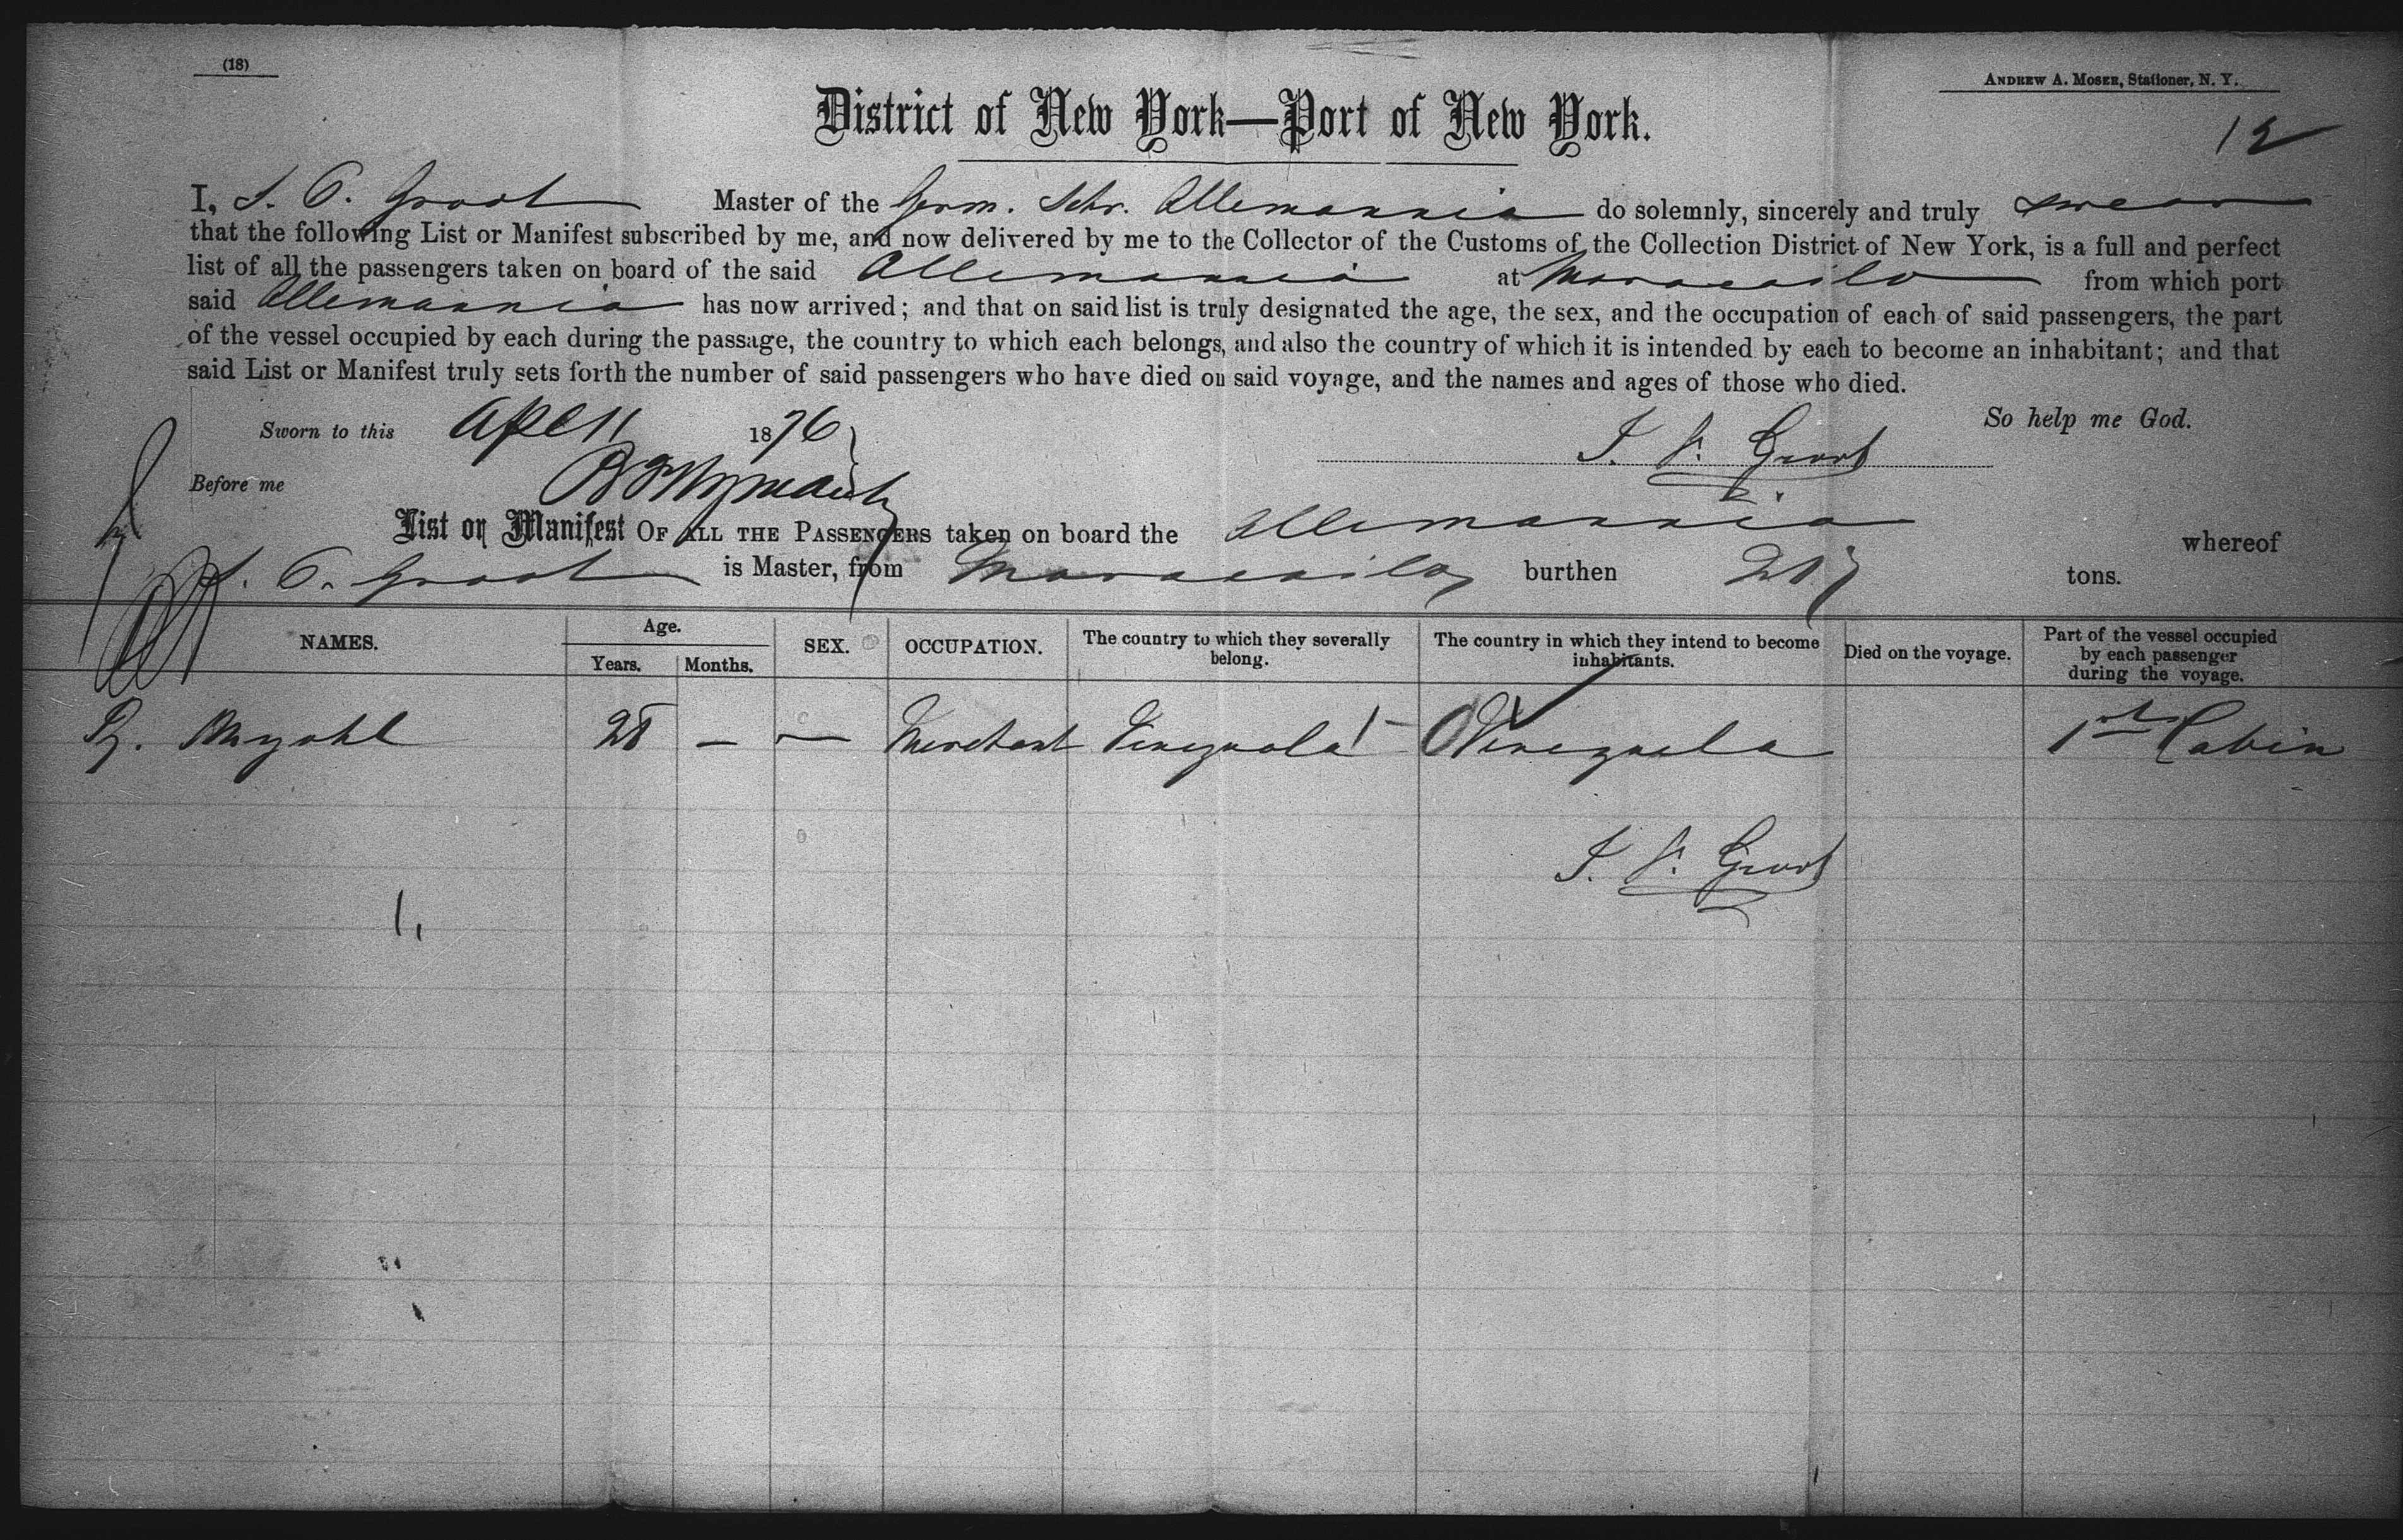 (18)
ANDREW A. MOSER, Stationer, N. Y.
District of New York—Port of New York.
12
I, J. P. Groot Master of the Germ. Schr. Allemannia do solemnly, sincerely and truly swear
that the following List or Manifest subscribed by me, and now delivered by me to the Collector of the Customs of the Collection District of New York, is a full and perfect
list of all the passengers taken on board of the said Allemannia at Maracaibo from which port
said Allemannia has now arrived; and that on said list is truly designated the age, the sex, and the occupation of each of said passengers, the part
of the vessel occupied by each during the passage, the country to which each belongs, and also the country of which it is intended by each to become an inhabitant; and that
said List or Manifest truly sets forth the number of said passengers who have died on said voyage, and the names and ages of those who died.
So help me God.
Sworn to this Apl 11 1876
J. P. Groot
Before me
List or Manifest OF ALL THE PASSENGERS taken on board the Allemannia whereof
J. P. Groot is Master, from Maracaibo burthen 217 tons.
NAMES. Age. Years. Months. SEX. OCCUPATION. The country to which they severally belong. The country in which they intend to become inhabitants. Died on the voyage. Part of the vessel occupied by each passenger during the voyage.
28 — — Merchant Venezuela Venezuela 1st Cabin
J. P. Groot
1,